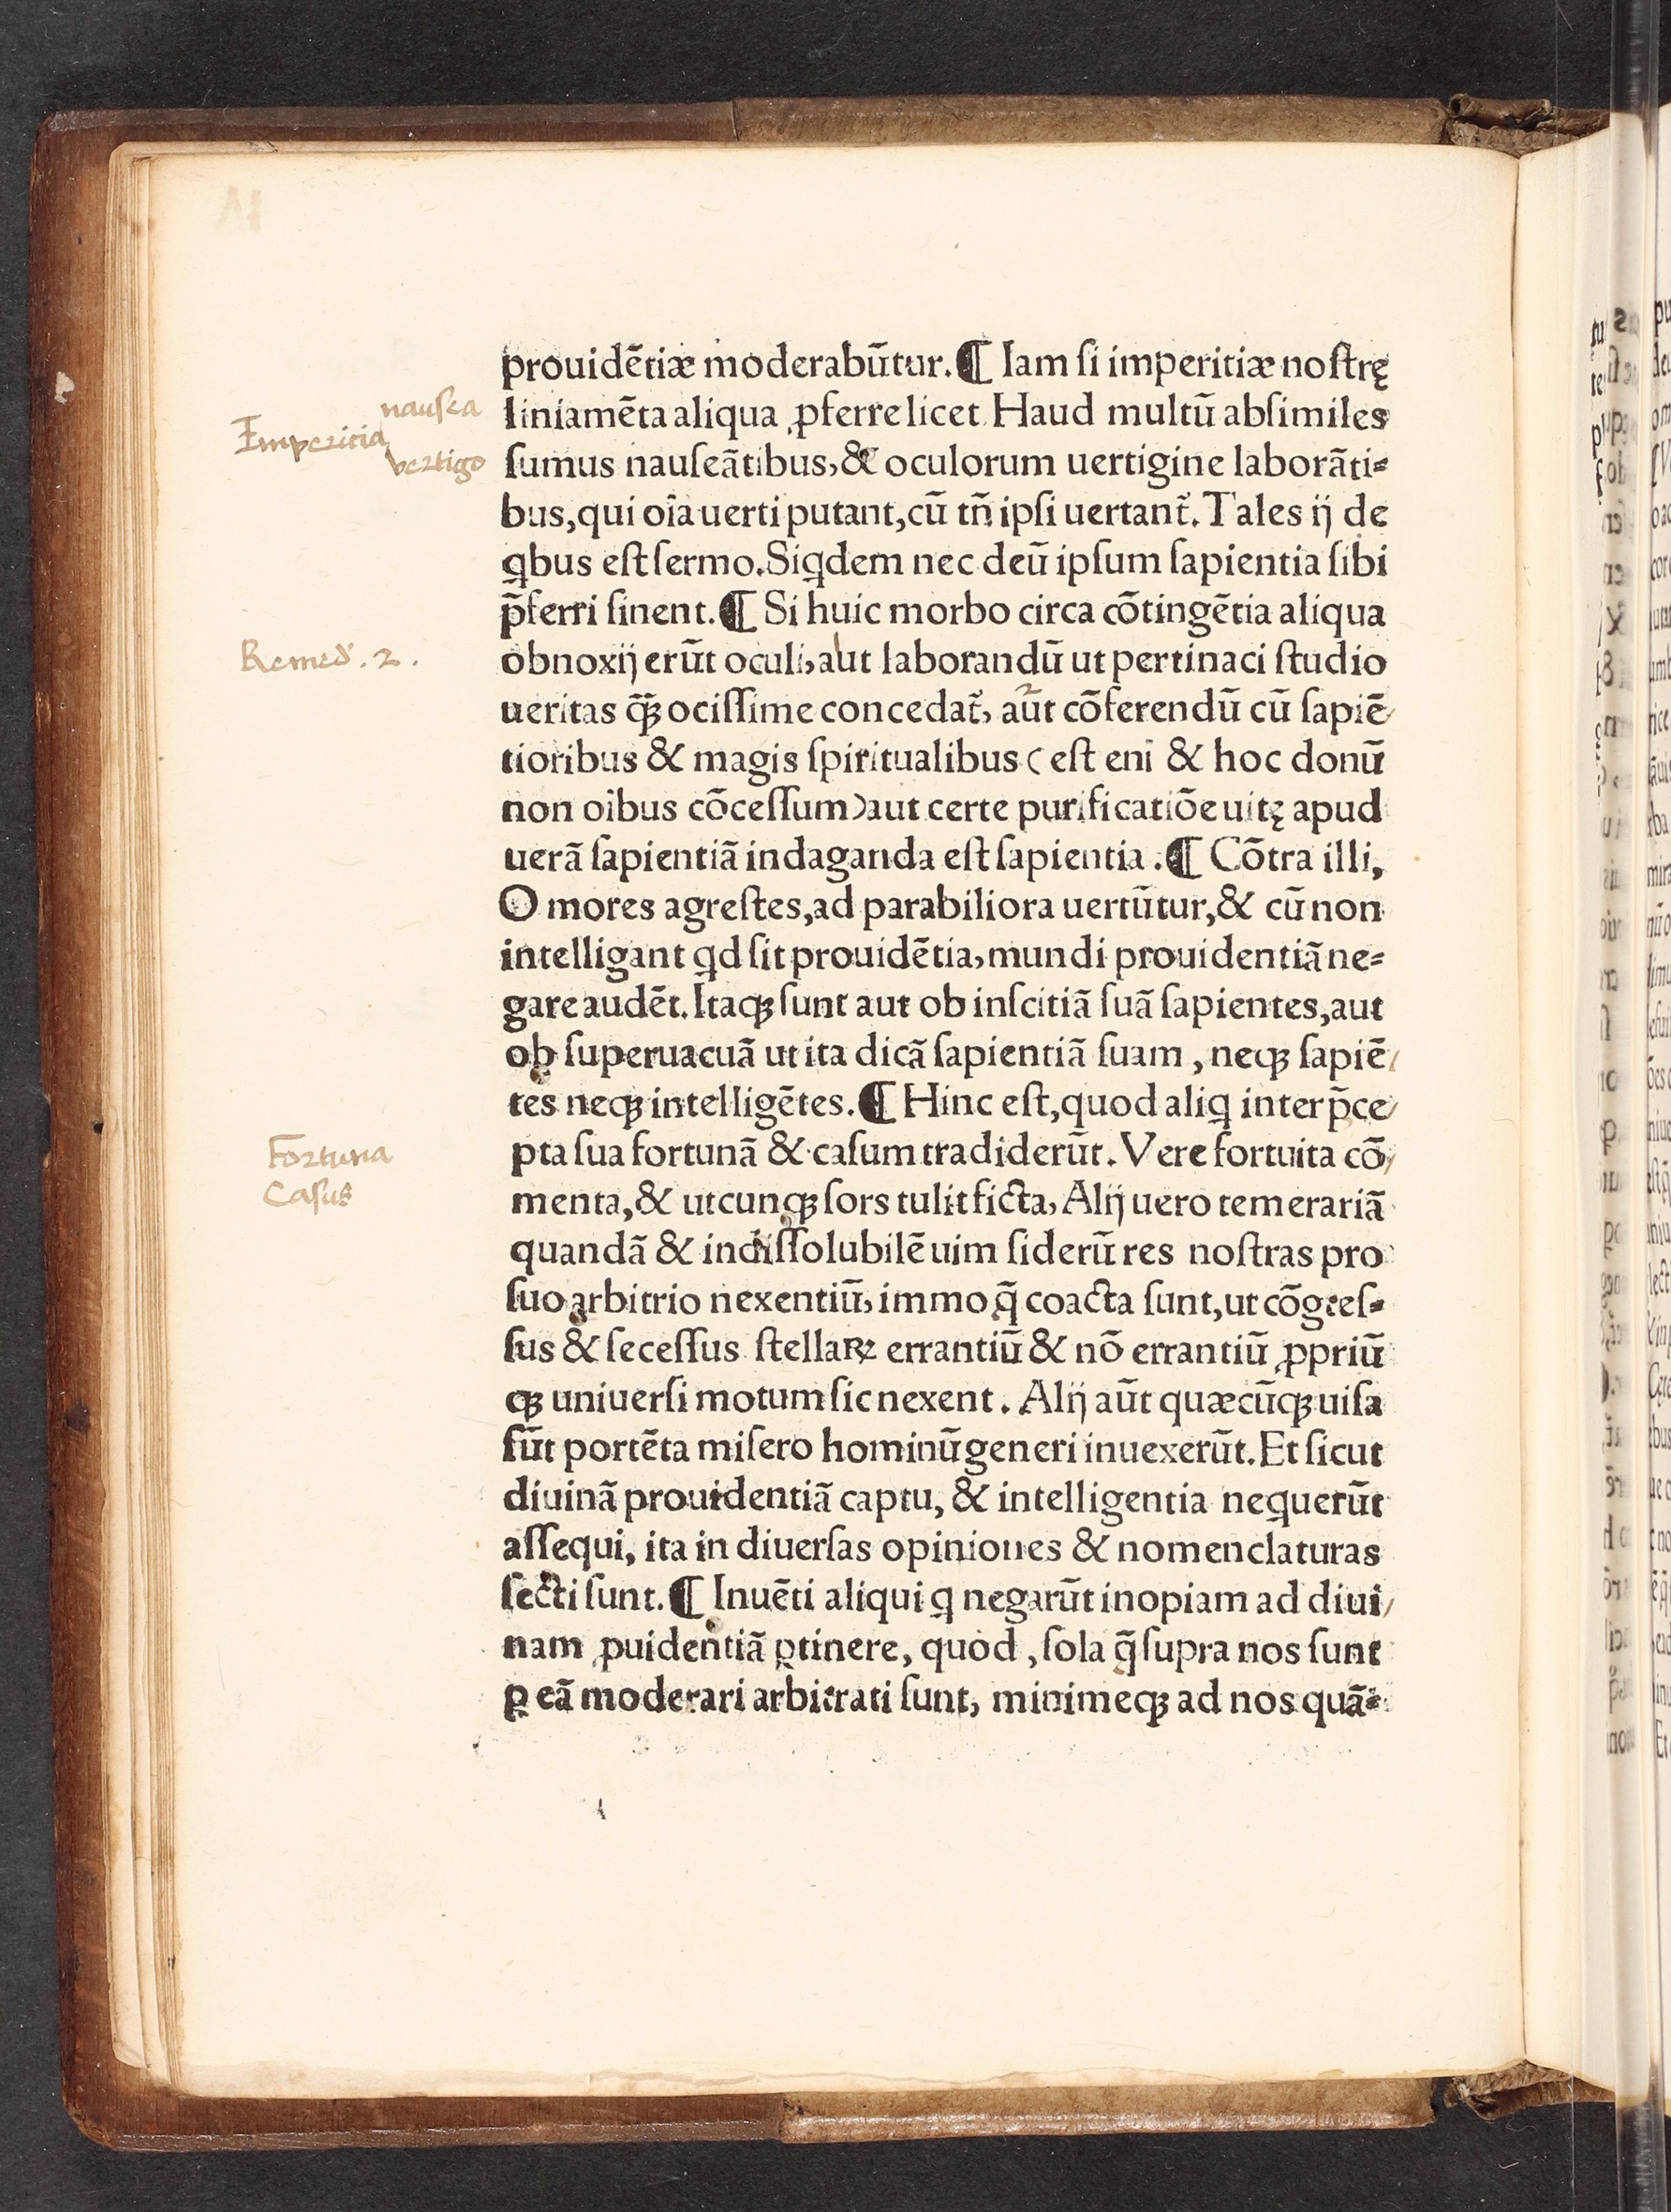 prouidētiæ moderabūtur.¶ Iam ſi imperitiæ noſtrę
nauſea
liniamēta aliqua ꝓferre licet Haud multū abſimiles
Imperitia
vertigo
ſumus nauſeātibus, & oculorum uertigine laborāti⸗
bus, qui oīa uerti putant, cū tñ ipſi uertant̃. Tales ij de
ꝗbus eſt ſermo. Siꝗdem nec deū ipſum ſapientia ſibi
p̄ferri ſinent.¶ Si huic morbo circa cōtingētia aliqua
Remed. 2.
obnoxij erūt oculi, aut laborandū ut pertinaci ſtudio
ueritas q̄̄ꝫ ociſſime concedat̃, aūt cōferendū cū ſapiē/
tioribus & magis ſpiritualibus (eſt eni & hoc donū
non oībus cōceſſum) aut certe purificatiōe uitę apud
uerā ſapientiā indaganda eſt ſapientia.¶ Cōtra illi,
O mores agreſtes, ad parabiliora uertūtur, & cū non
intelligant ꝗd ſit prouidētia, mundi prouidentiā ne⸗
gare audēt. Itaqꝫ ſunt aut ob inſcitiā ſuā ſapientes, aut
ob ſuperuacuā ut ita dicā ſapientiā ſuam, neqꝫ ſapiē/
tes neqꝫ intelligētes.¶ Hinc eſt, quod aliꝗ inter p̄ce/
Fortuna
pta ſua fortunā & caſum tradiderūt. Vere fortuita cō/
Caſus
menta, & utcunqꝫ ſors tulit ficta, Alij uero temerariā
quandā & indiſſolubilē uim ſiderū res noſtras pro
ſuo arbitrio nexentiū, immo q̄ coacta ſunt, ut cōgreſ⸗
ſus & ſeceſſus ſtellaꝝ errantiū & nō errantiū ꝓpriū
qꝫ uniuerſi motum ſic nexent. Alij aūt quæcūqꝫ uiſa
ſūt portēta miſero hominū generi inuexerūt. Et ſicut
diuinā prouidentiā captu, & intelligentia nequerūt
aſſequi, ita in diuerſas opiniones & nomenclaturas
ſecti ſunt.¶ Inuēti aliqui ꝗ negarūt inopiam ad diui/
nam ꝓuidentiā ꝑtinere, quod, ſola q̄ ſupra nos ſunt
ꝑ eā moderari arbitrati ſunt, minimeqꝫ ad nos quā⸗